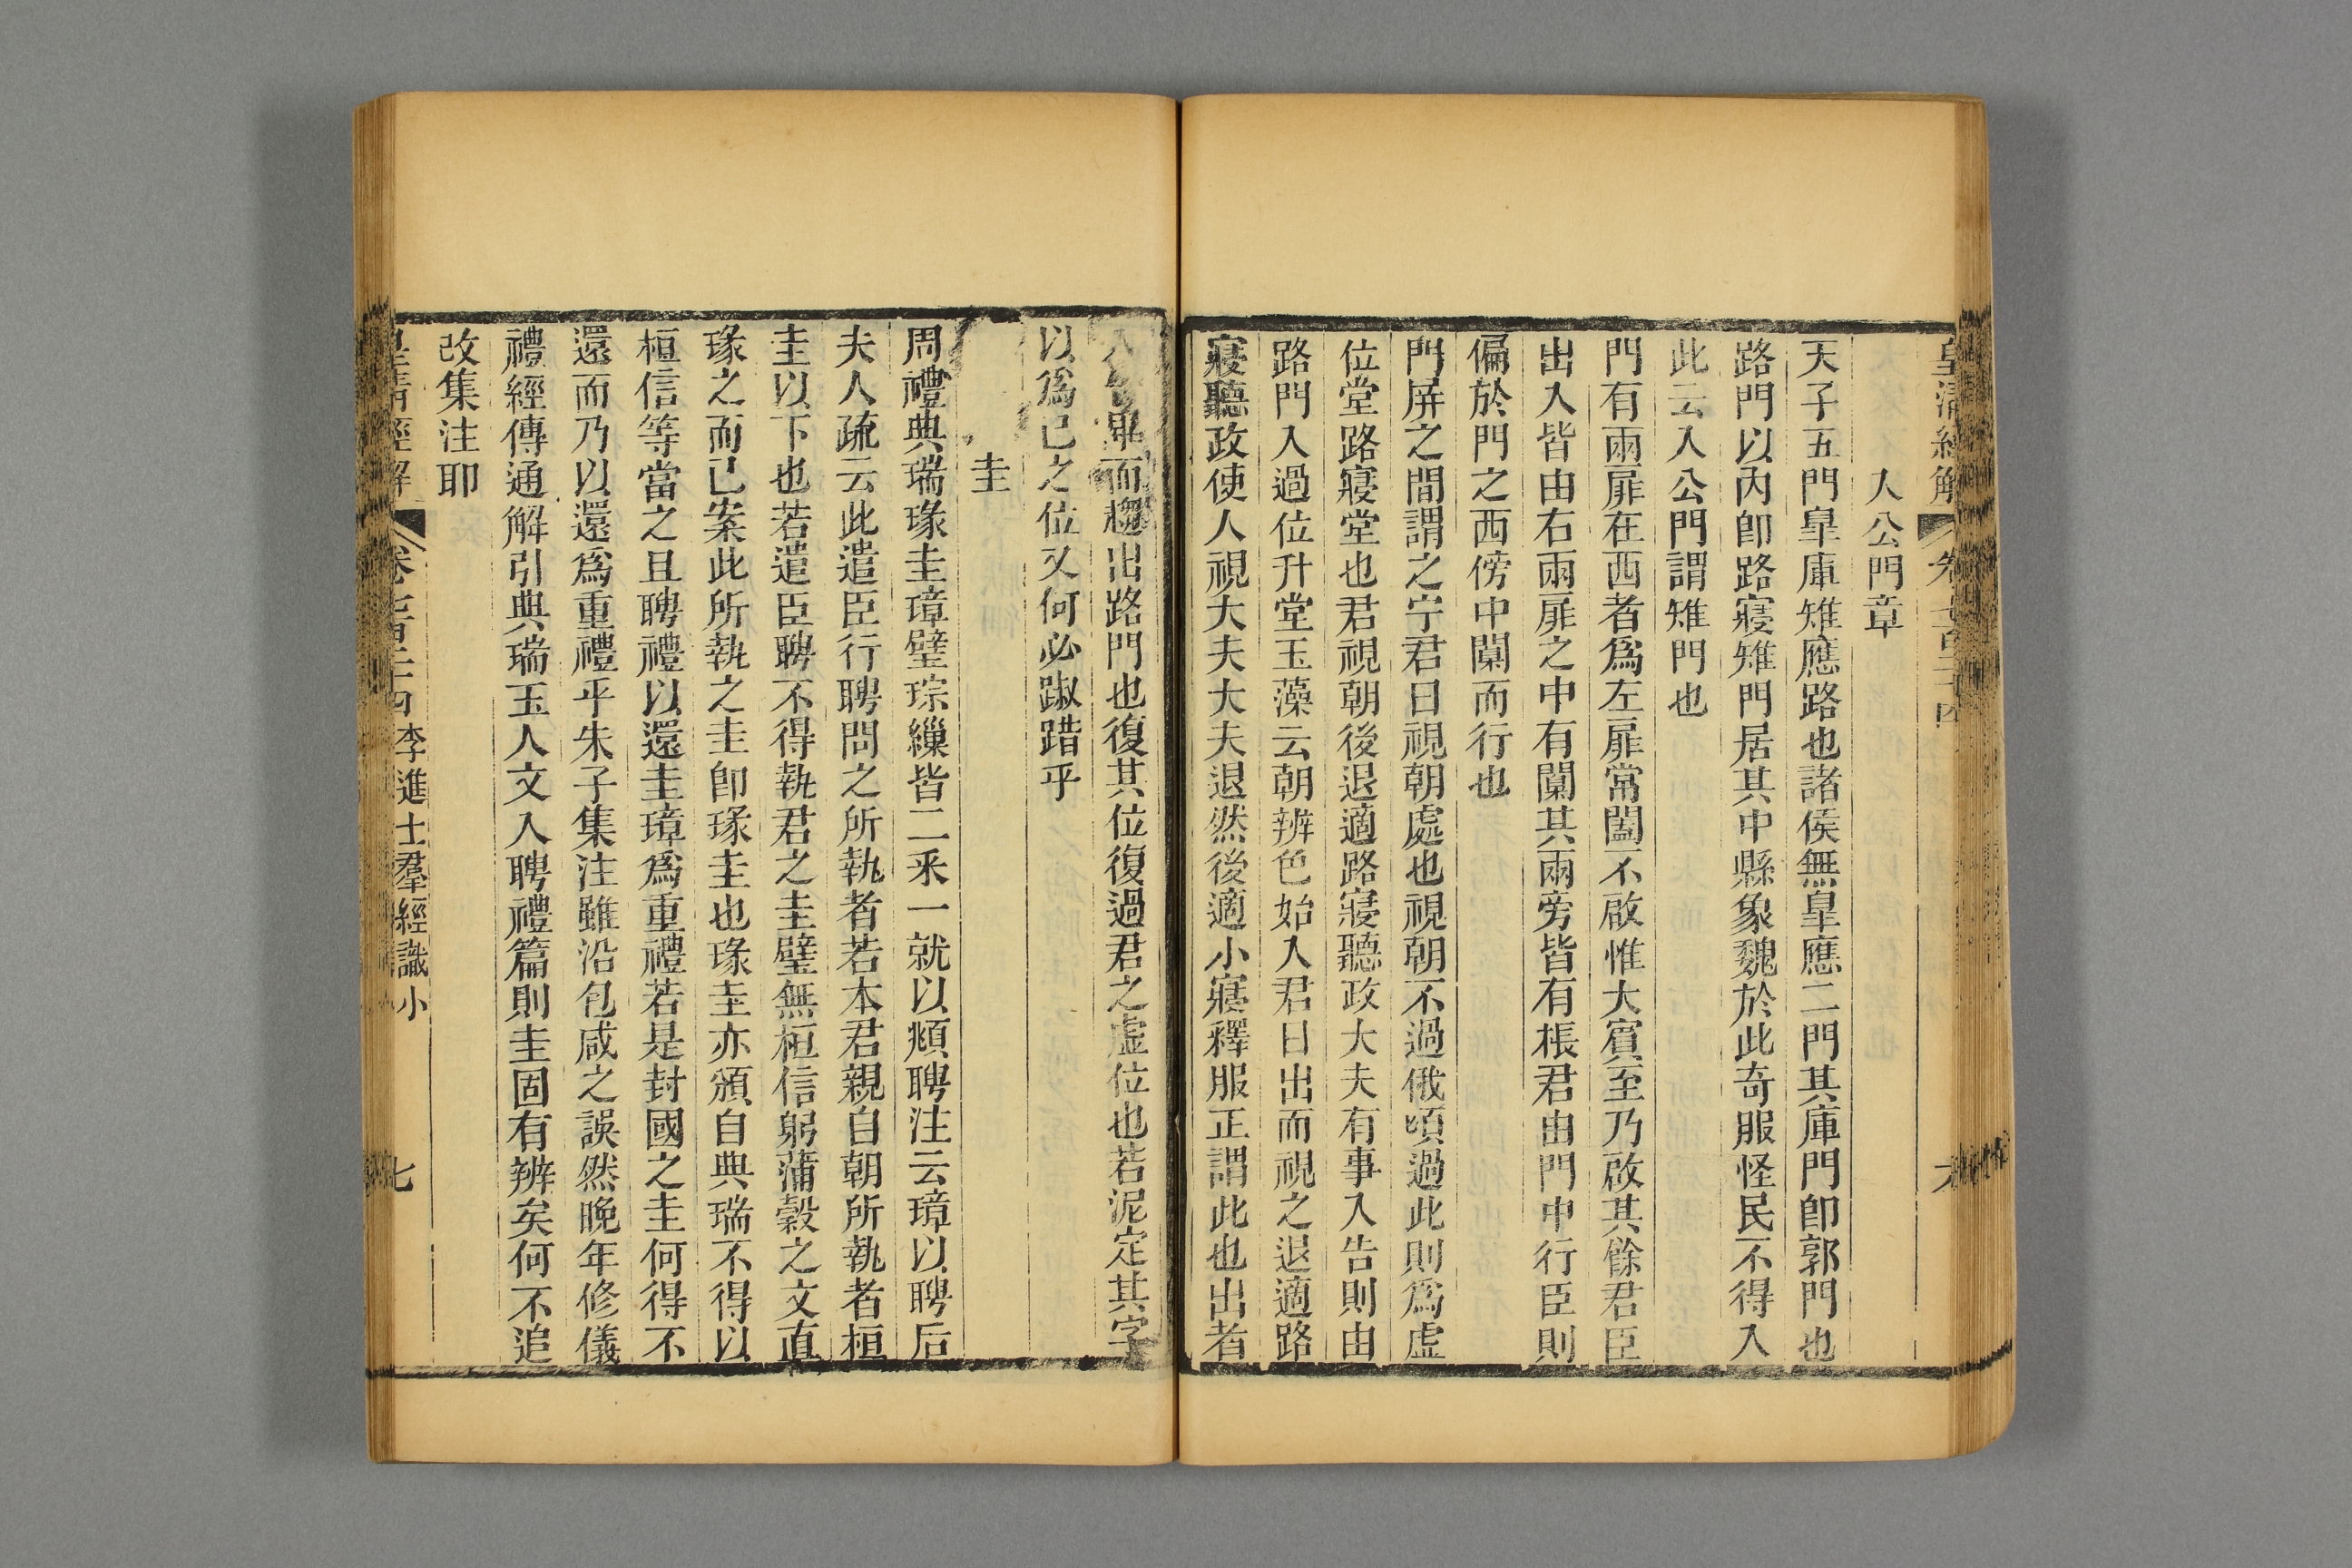 皇清經解 卷七百二十四 六
入公門章
天子五門臯庫雉應路也諸侯無臯應二門其庫門卽郭門也
路門以內卽路寢雉門居其中縣象魏於此奇服怪民不得入
此云入公門謂雉門也
門有兩扉在西者爲左扉常闔不啟惟大賓至乃啟其餘君臣
出入皆由右兩扉之中有闑其兩旁皆有棖君由門中行臣則
偏於門之西傍中闑而行也
門屏之間謂之宁君日視朝處也視朝不過俄頃過此則爲虛
位堂路寢堂也君視朝後退適路寢聽政大夫有事入告則由
路門入過位升堂玉藻云朝辨色始入君日出而視之退適路
寢聽政使人視大夫大夫退然後適小寢釋服正謂此也出者
畢而趨出路門也復其位復過君之虛位也若泥定其字
以爲己之位又何必踧踖乎
圭
周禮典瑞瑑圭璋璧琮繅皆二采一就以頫聘注云璋以聘后
夫人疏云此遣臣行聘問之所執者若本君親自朝所執者桓
圭以下也若遣臣聘不得執君之圭璧無桓信躬蒲穀之文直
瑑之而已案此所執之圭卽瑑圭也瑑圭亦頒自典瑞不得以
桓信等當之且聘禮以還圭璋爲重禮若是封國之圭何得不
還而乃以還爲重禮乎朱子集注雖沿包咸之誤然晚年修儀
禮經傳通解引典瑞玉人文入聘禮篇則圭固有辨矣何不追
改集注耶
皇清經解 卷七百二十四 李進士羣經識小 七